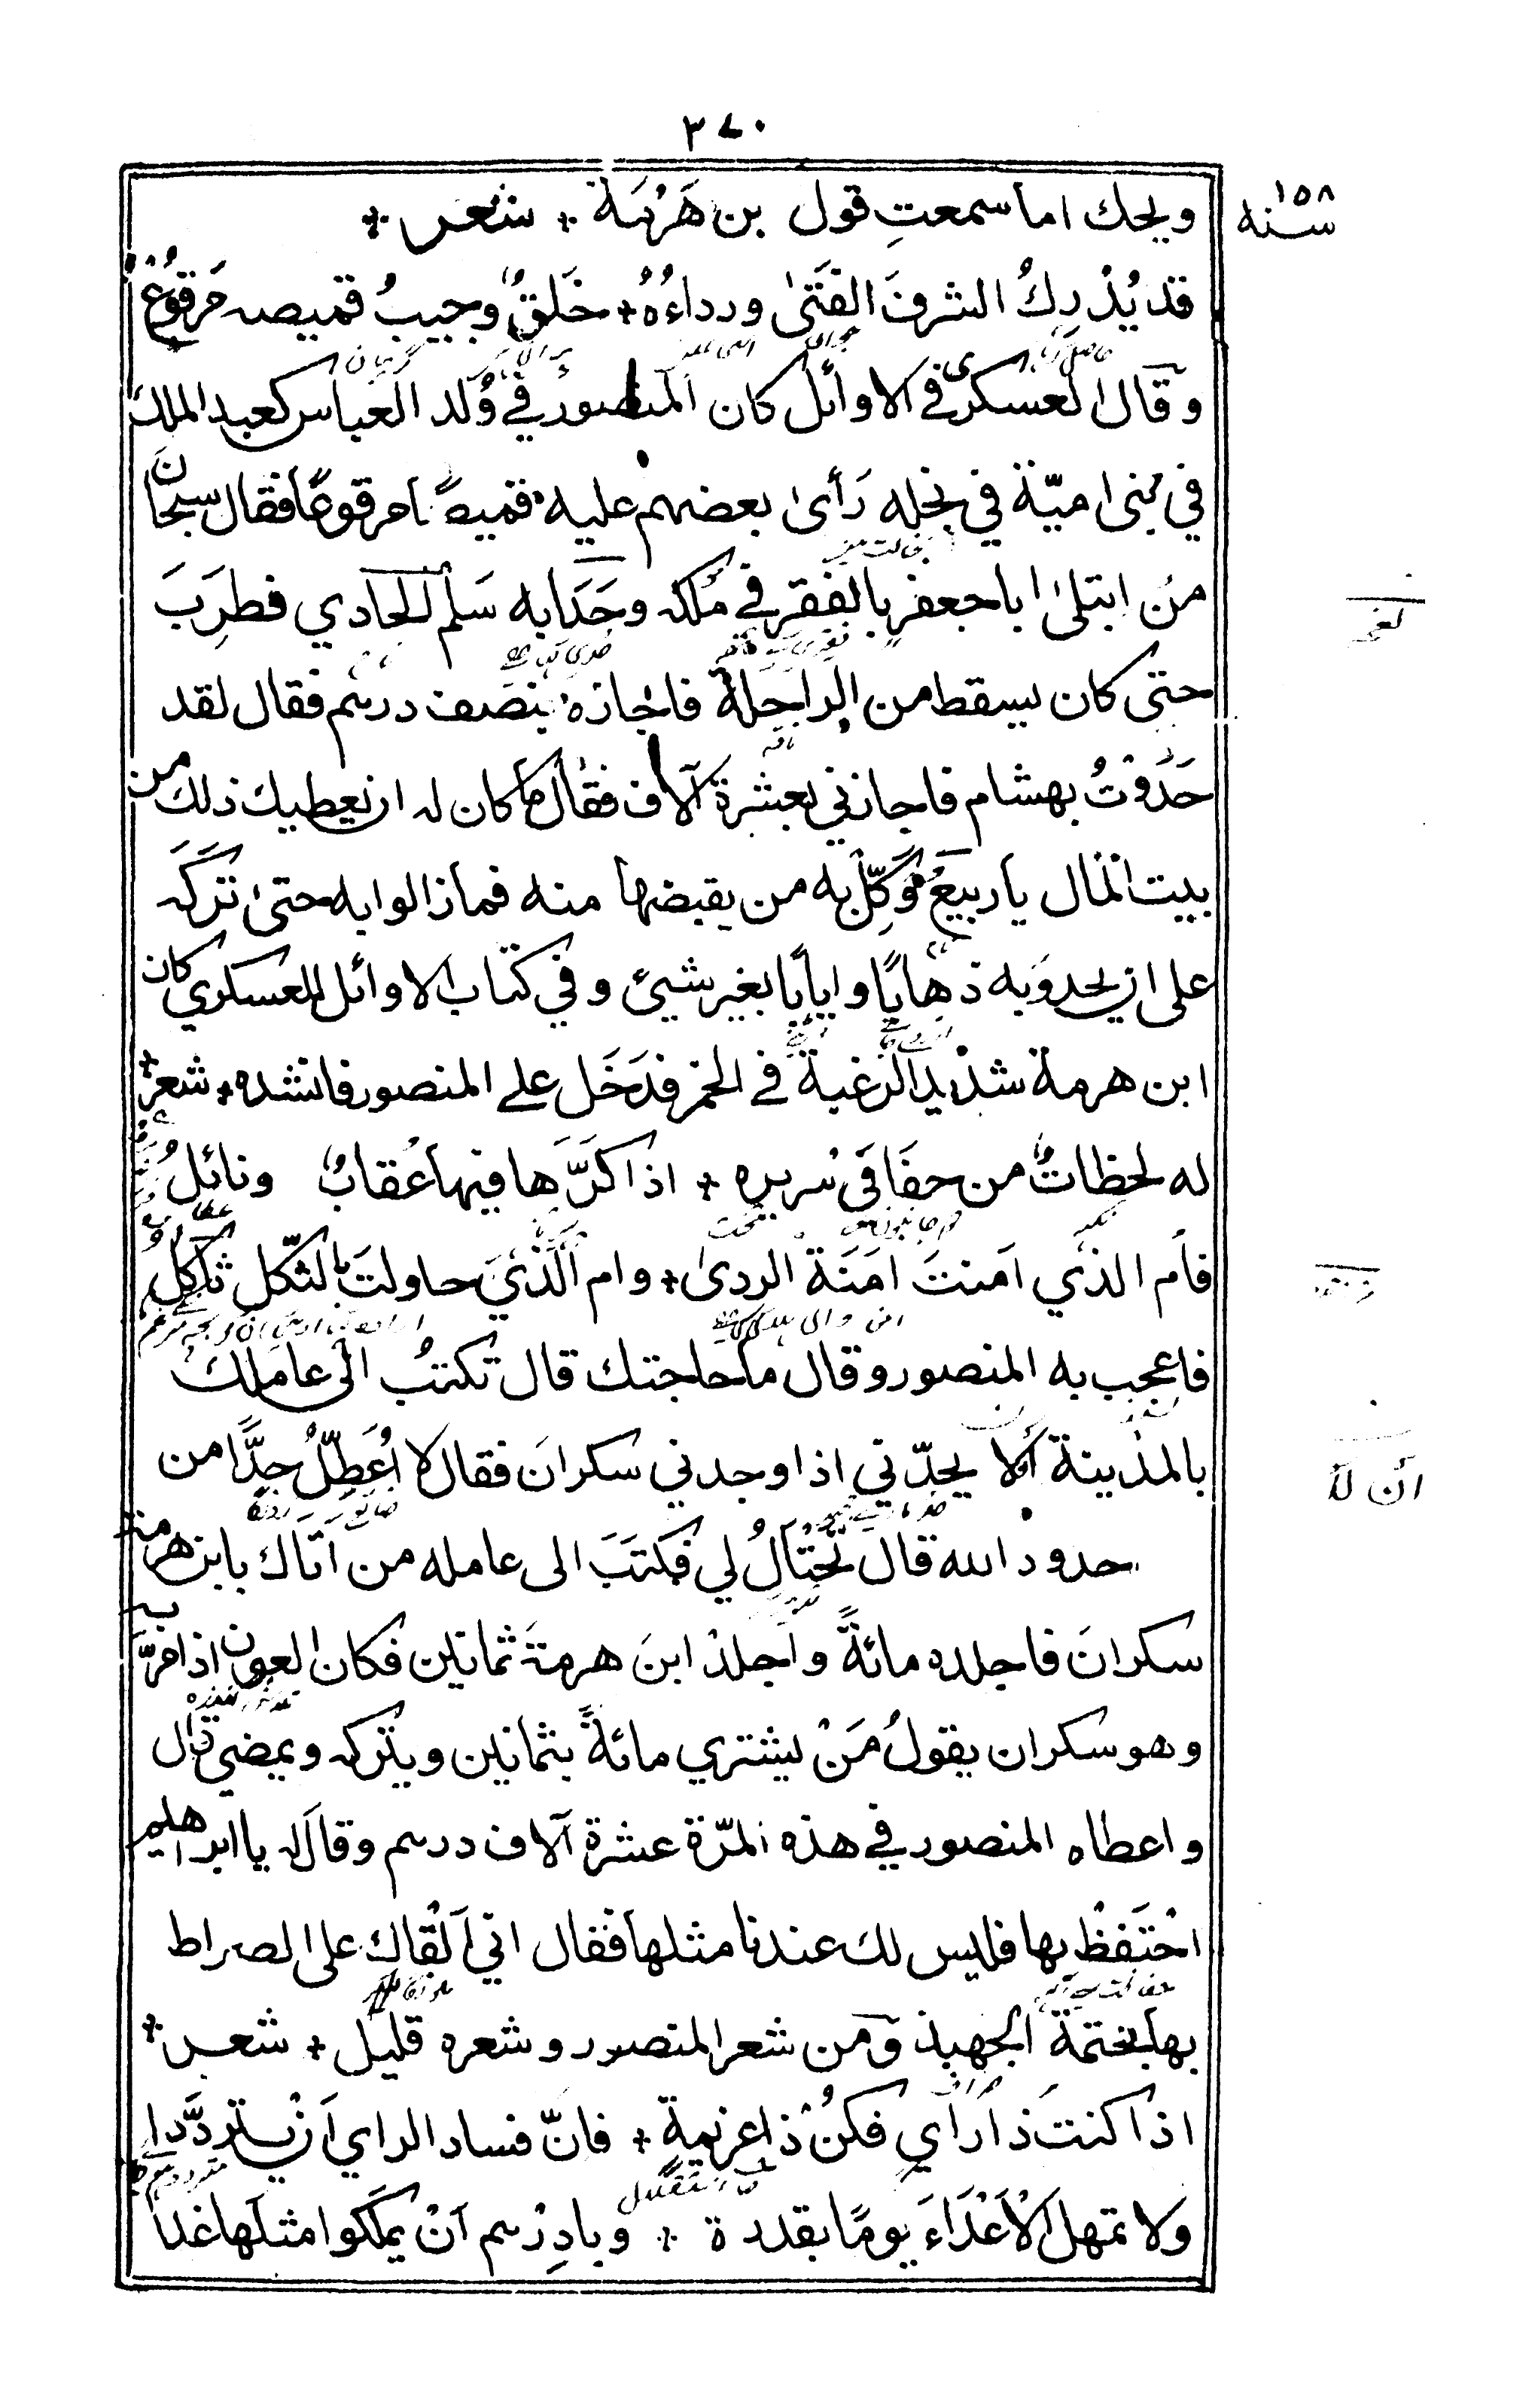 ٣٧٠
سنه ١٥٨
ويحك اما سمعتِ قول بن هَرْمَة * شعر *
قد يُدْرِكُ الشرفَ الفَتَىٰ ورداءُهُ * خَلَقٌ وجيبُ قميصه مَرقُوعُ
وقال العسكرى في الاوائل كان المنصور في وُلد العباس كعبد الملك
في بنى اميّة في بخله رَأىٰ بعضهم عليه قميصًا مرقوعًا فقال سبحان
من ابتلىٰ ابا جعفر بالفقر في مُلكه وحَدَابه سَلم الحادي فطرِبَ
حتى كان يسقط من الراحلة فاجازه بنصف درهم فقال لقد
حَدَوْتُ بهشام فاجازني بعشرة آلاف فقال ما كان له ان يعطيك ذلك من
بيت المال يا ربيع وَكِّل به من يقبضها منه فمازالوا به حتىٰ تَرَكَه
على ان يحدوَ به ذهابًا وايابًا بغير شيئ وفي كتاب الاوائل للعسكري كان
ابن هرمة شديد الرغبة في الخمر فدَخَل على المنصور فانشده * شعر *
له لحظاتٌ من حفَافَى سريره * اذا كرَّها فيها عقابٌ ونائلُ
فاُم الذي اَمنتَ اٰمنَة الردىٰ * وام الَّذيَ حاولتَ بالثكل ثاكلُ
فاعجب به المنصور وقال ما حاجتك قال تكتبُ الى عاملك
بالمدينة ألا يحدّني اذا وجدني سكرانَ فقال لا اُعَطِّلُ حدًّا من
ان لا
حدود الله قال تَحْتَالُ لي فكتَبَ الى عامله من اَتَاك بابن هرمة
سكرانَ فاجلده مائةً واجلدْ ابنَ هرمةَ ثمانين فكان العون اذا مرَّ به
وهو سكران يقولُ مَنْ يشتري مائةً بثمانين ويتركه ويمضي قال
واعطاه المنصور في هذه المرّة عشرة آلاف درهم وقال له يا ابراهيم
احْتَفِظْ بها فليس لك عندنا مثلها فقال اني اَلْقاك على الصراط
بها بختمة الجهبذ ومن شعر المنصور وشعره قليل * شعر *
اذا كنتَ ذا رأي فكُنْ ذا عزيمةٍ * فانّ فساد الراي اَنْ يتردَّدا
ولا تمهل الْاَعْدَاءَ يومًا بقدرة * وبادِرْهم اَنْ يملكوا مثلَها غدا